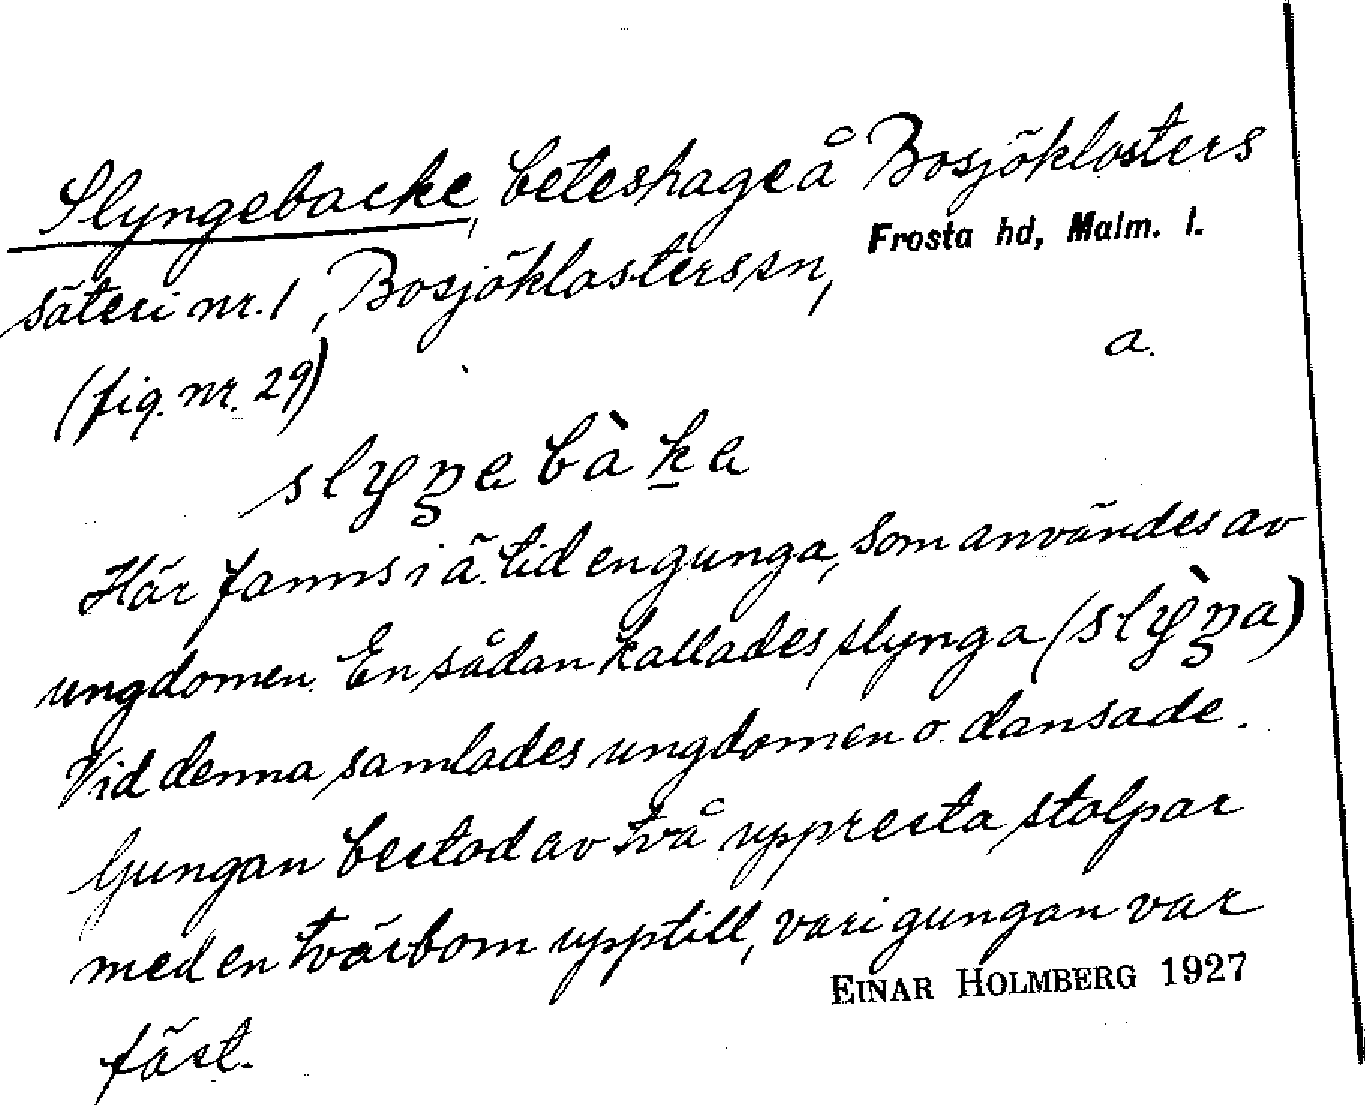 Slyngebacke, beteshage å Bosjöklosters
Frosta hd, Malm. l.
säteri nr. 1, Bosjöklosters sn,
a.
(fig. nr. 29)
slyŋebàka
Här fanns i ä. tid en gunga, som användes av
ungdomen. En sådan kallades slynga (slỳŋa)
Vid denna samlades ungdomen o. dansade.
Gungan bestod av två uppresta stolpar
med en tvärbom upptill, vari gungan var
EINAR HOLMBERG 1927
fäst.